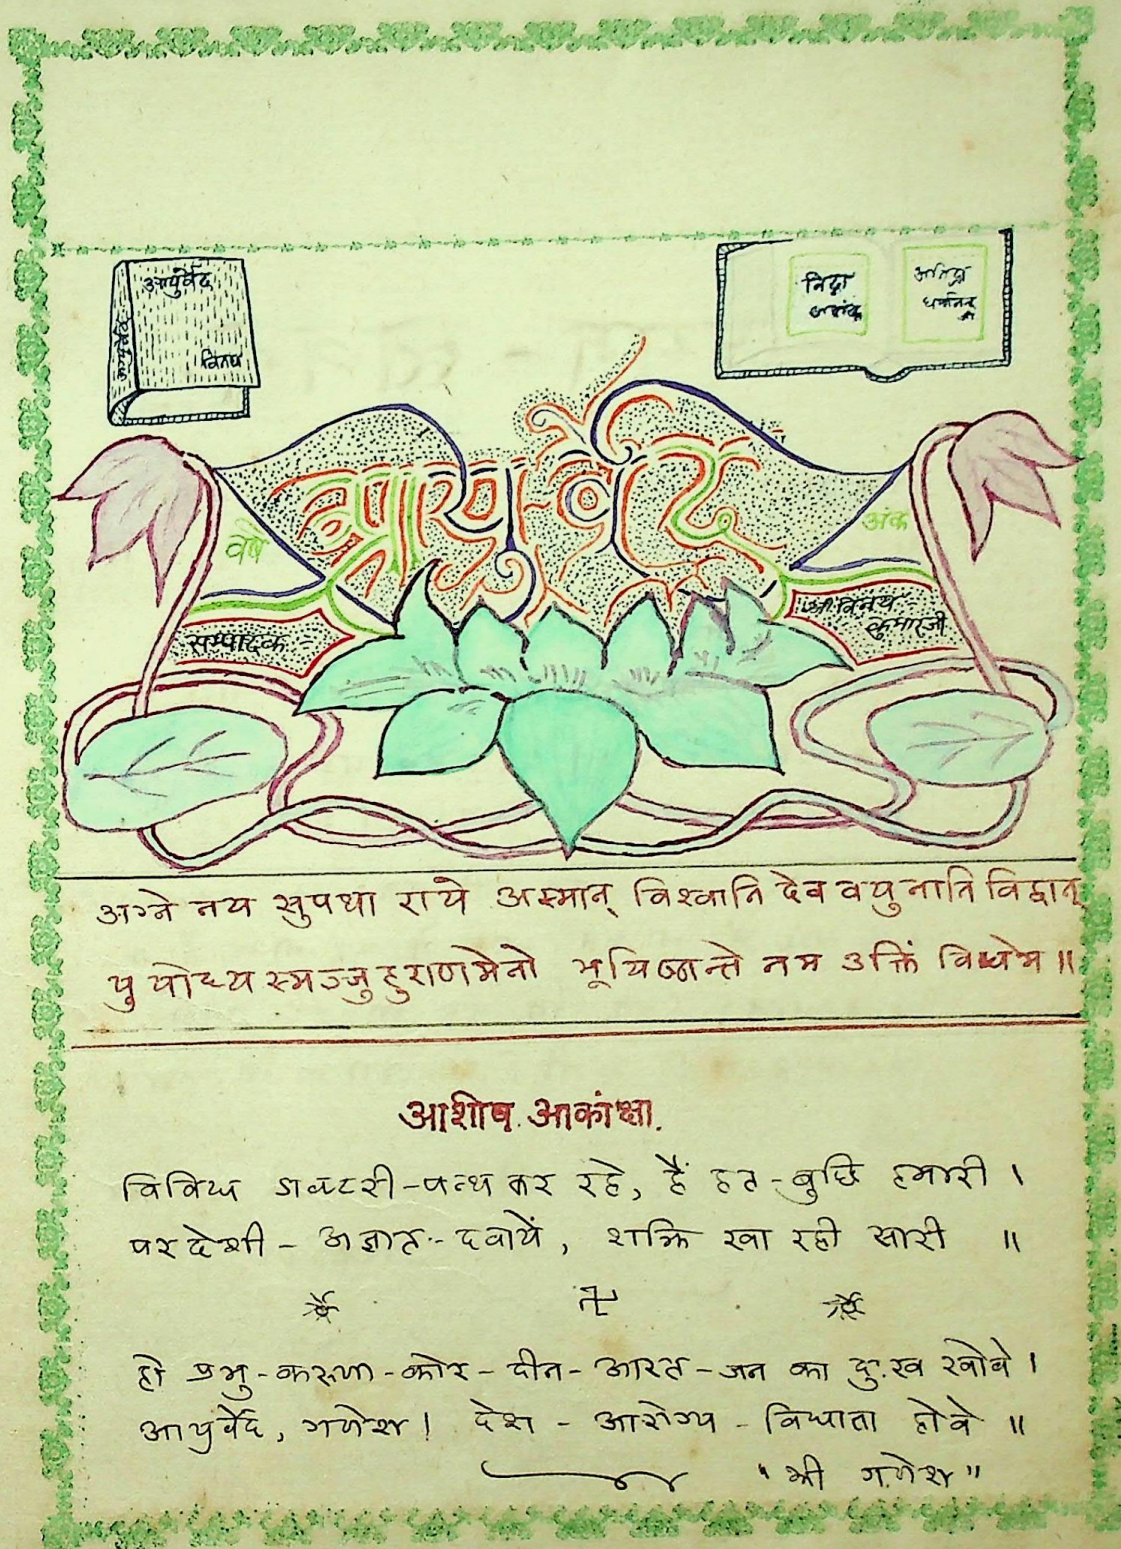 आयुर्वेद
विनय
निद्रा
आयुर्वेद
वर्ष
अंक
सम्पादक :-
श्री विनय :-
कुमारजी
अग्ने नय सुपथा राये अस्मान् विश्वानि देव वयुनानि विद्वान्
युयोध्य स्मज्जुहुराणमेनो भूयिष्ठान्ते नम उक्तिं विधेम ॥
आशीष. आकांक्षा.
विविध डाक्टरी-पन्थ कर रहे, हैं हत-बुद्धि हमारी ।
परदेशी - अज्ञात - दवायें, शक्ति खा रही सारी ॥
हो प्रभु-करुणा-कोर-दीन-आरत-जन का दुःख खोवे ।
आयुर्वेद, गणेश ! देश - आरोग्य - विधाता होवे ॥
" श्री गणेश "